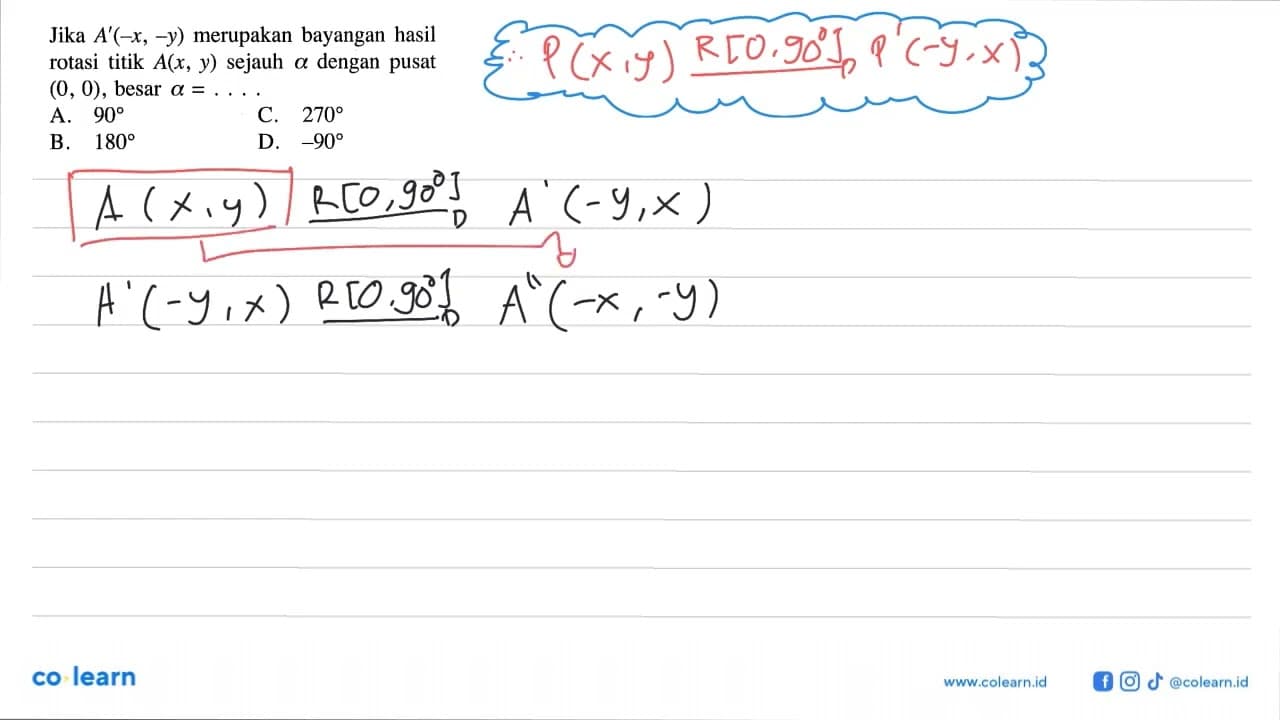 Jika A'(–x, –y) merupakan bayangan hasil
rotasi titik A(x, y) sejauh α dengan pusat
(0, 0), besar α = . . . .
A. 90° C. 270°
B. 180° D. –90°
∴ P(x,y) R[0,90°] P'(-y,x)
A(x,y) R[0,90°] A'(-y,x)
A'(-y,x) R[0,90°] A"(-x,-y)
co learn
www.colearn.id
@colearn.id